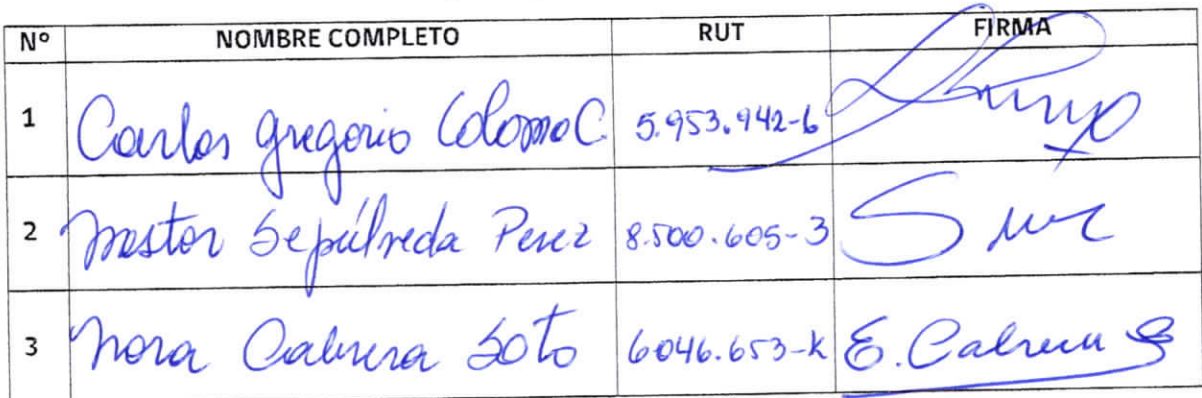 N° NOMBRE COMPLETO RUT FIRMA
1 Carlos Gregorio Coloma C. 5.953.942-6
2 Nestor Sepúlveda Perez 8.500.605-3
3 Nora Cabrera Soto 6046.653-k E. Cabrera S